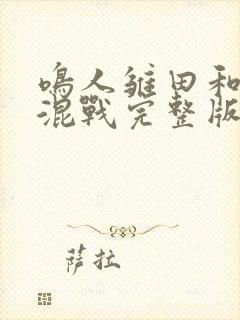 鳴人雏田和
混戰完整版
萨拉